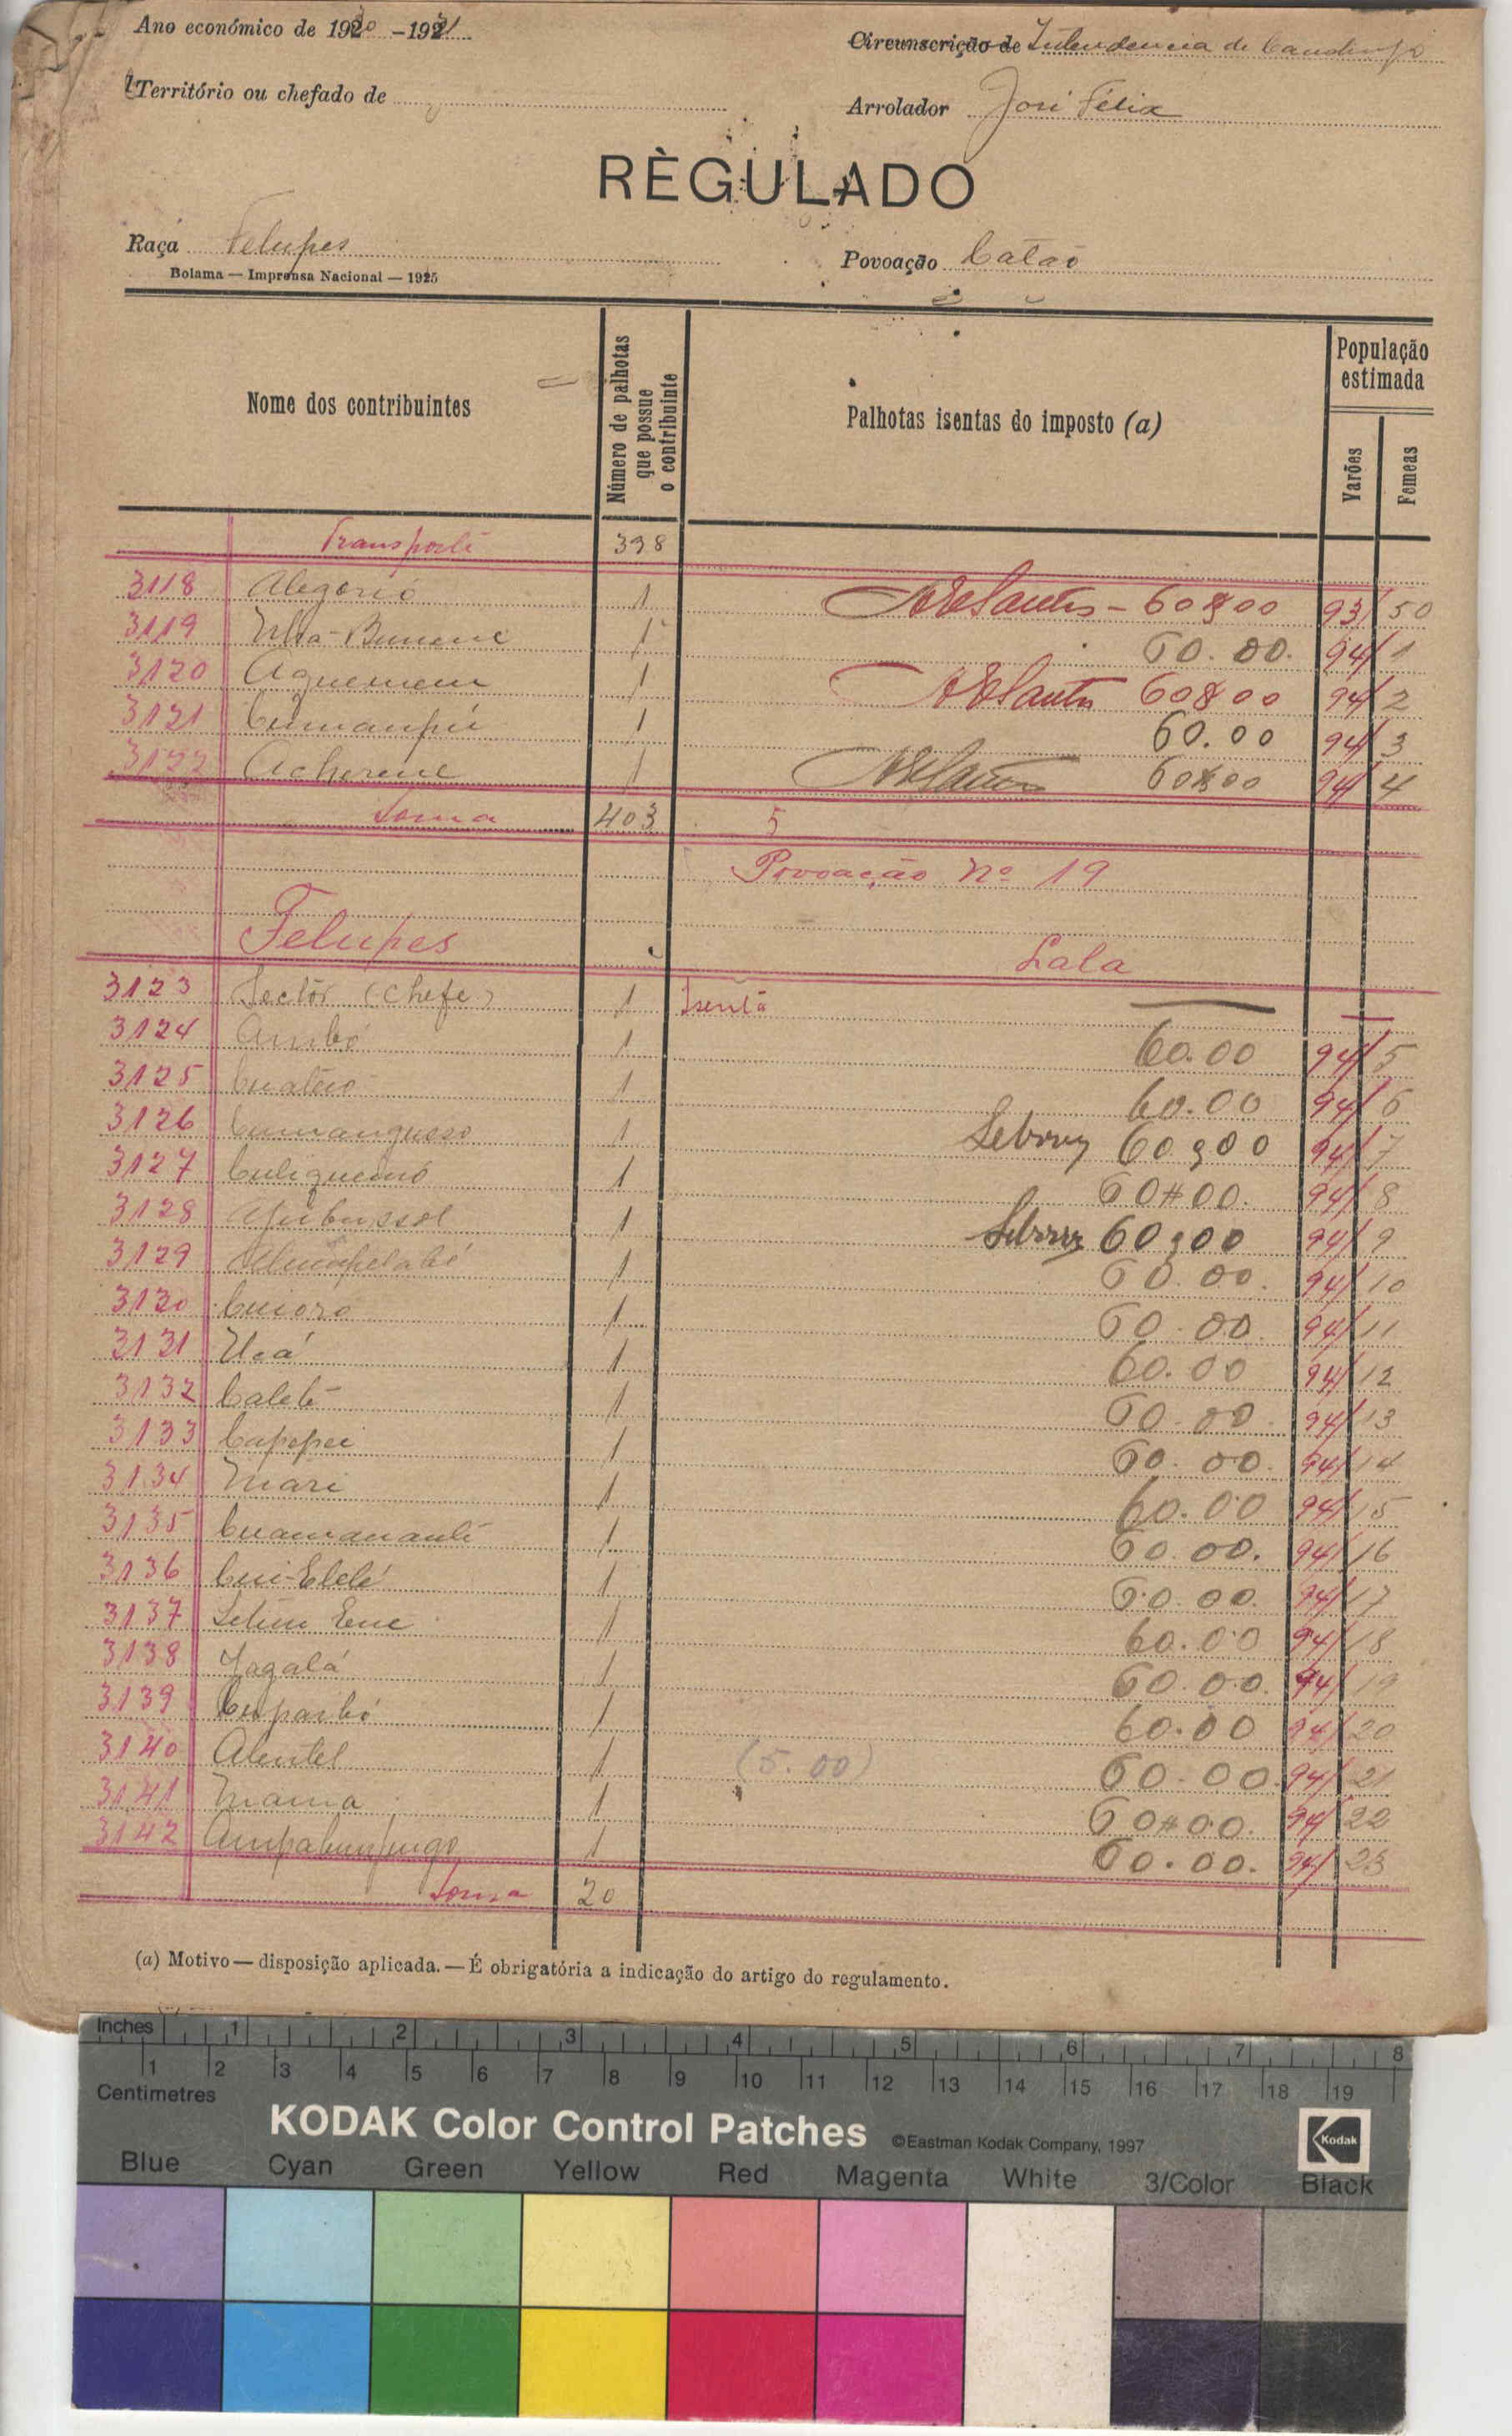 Ano económico de 1930 - 1931
Circunscrição de Intendencia de Canchungo
Território ou chefado de
Arrolador José Félix
RÈGULADO
Raça Felupes
Povoação Catão
Bolama — Imprensa Nacional — 1925
Nome dos contribuintes
Número de palhotas que possue o contribuinte
Palhotas isentas do imposto (a)
População estimada
Varões
Femeas
Transporte 398
3118 Alegorió 1 60$00 93/ 50
3119 1 60.00. 94/ 1
3120 1 60$00 94/ 2
3121 1 60.00 94/ 3
3122 Acherene 1 60$00 94/ 4
Soma 403 5
Povoação Nº 19
Felupes Lala
3123 Sectór (Chefe) 1 Isenta —
3124 Ambó 1 60.00 94/ 5
3125 1 60.00 94/ 6
3126 Cumanqueso 1 60,00 94/ 7
3127 1 60#00. 94/ 8
3128 1 60,00 94/ 9
3129 1 60.00. 94/ 10
3130 Cuioro 1 60.00. 94/ 11
3131 1 60.00 94/ 12
3132 Caleté 1 60.00. 94/ 13
3133 Capepei 1 60.00. 94/ 14
3134 Mari 1 60.00 94/ 15
3135 Cuamananté 1 60.00. 94/ 16
3136 Cui-Elelé 1 60.00. 94/ 17
3137 1 60.00 94/ 18
3138 Jagalá 1 60.00. 94/ 19
3139 Cuparbó 1 60.00 94/ 20
3140 Alentel 1 (5.00) 60.00. 94/ 21
3141 Mama 1 60#00. 94/ 22
3142 1 60.00. 94/ 23
Soma 20
(a) Motivo — disposição aplicada. — É obrigatória a indicação do artigo do regulamento.
Inches 1 2 3 4 5 6 7 8
1 2 3 4 5 6 7 8 9 10 11 12 13 14 15 16 17 18 19
Centimetres
KODAK Color Control Patches ©Eastman Kodak Company, 1997 Kodak
Blue Cyan Green Yellow Red Magenta White 3/Color Black